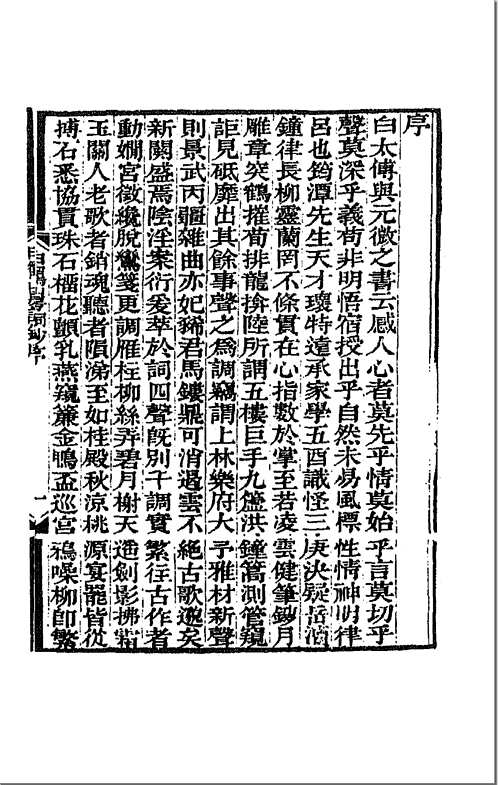 序
白太傅與元微之書云感人心者莫先乎情莫始乎言莫切乎
聲莫深乎義苟非明悟宿授出乎自然未易風標性情神明律
呂也筠潭先生天才瓌特遠承家學五酉識怪三庚決疑岳
鐘律長柳靈蘭罔不條貫在心指數於掌至若凌雲健筆鏤月
雕章突鶴摧荀排龍擒陸所謂五樓巨手九簴洪鐘篙測管窺
詎見砥靡出其餘事聲之為調竊謂上林樂府大予雅材新聲
則景武丙疆雜曲亦妃豨君馬鏤鼎可消遏雲不絕古歌邈矣
新闋盛焉陰淫案衍爰萃於詞四聲既別千調實繁往古作者
動嫺宮徵纔脫鸞箋更調雁柱柳絲弄碧月榭天造劍影拂霜
玉關人老歌者銷魂聽者隕涕至如桂殿秋涼桃源宴罷皆從
搏石悉協貫珠石榴花顫乳燕窺簾金鴨盃巡宮鴉噪柳即繁
序
一